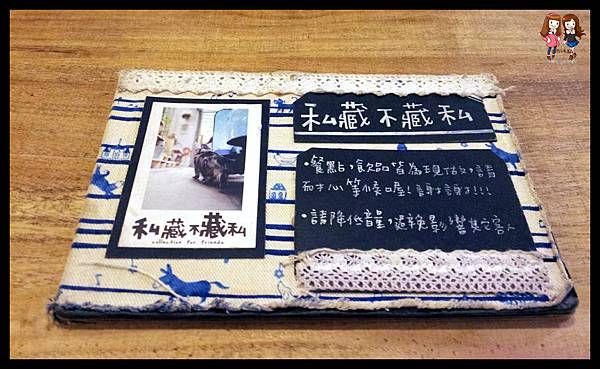 私藏不藏私
collection for friends
私藏不藏私
•餐點,飲品皆為現做,請
耐心等候喔!謝謝!!!
•請降低音量,避免影響其它客人